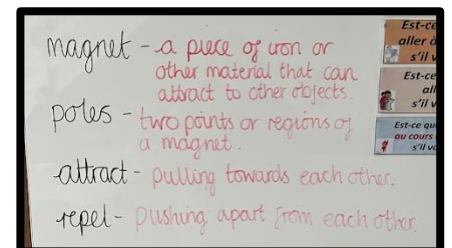 magnet - a piece of iron or
other material that can
attract to other objects.
poles - two points or regions of
a magnet.
attract - pulling towards each other.
repel - pushing apart from each other.
Est-ce
aller à
s'il v
Est-ce
all
s'il v
Est-ce que
ou cours
s'il vo